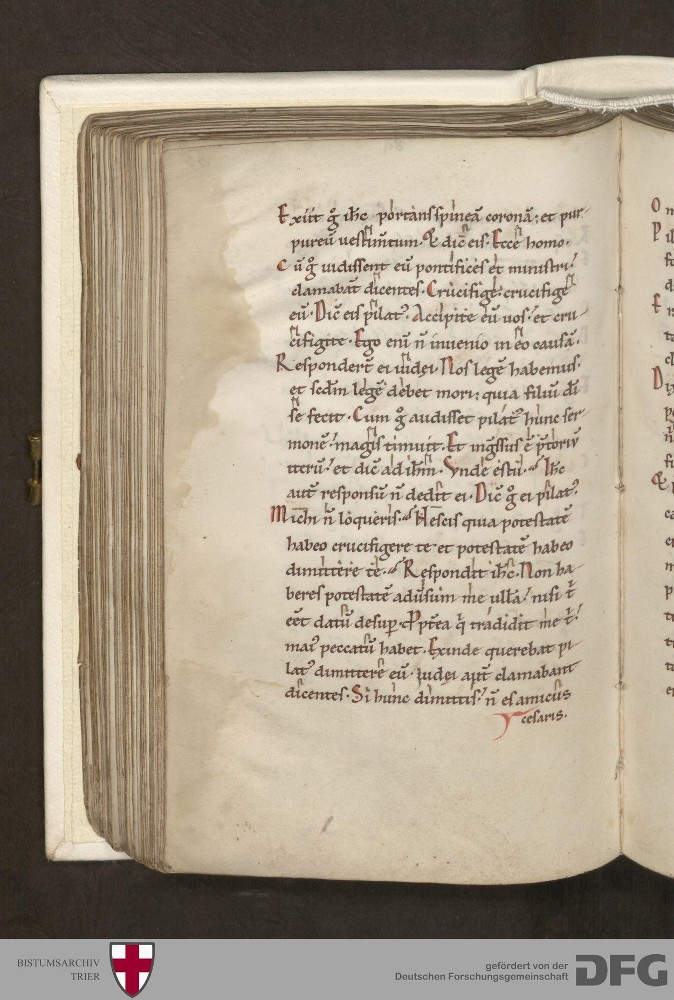 Exiit g̊ ih̄c portans spineā coronā; et pur-
pureū uestim̄tum. & dic̄ eis. Ecce homo.
Cū g̊ uidissent eū pontifices et ministri;
clamabant̄ dicentes. Crucifige; crucifige
eū. Dic̄ eis pilat᾽. Accipite eū uos; et cru-
cifigite. Ego eni̅ n̄ inuenio in eo causā.
Responder̄t ei iudei. Nos legē habemus.
et scd̄m legē debet mori; quia filiū dī
se fecit. Cum g̊ audisset pilat᾽ hunc ser-
monē; magis timuit. Et ingr̄ssus ē p̄toriū
iterū; et dic̄ ad ih̄m. Vnde es tu. Ih̄c
aut̄ responsū n̄ dedit ei. Dic̄ g̊ ei pilat᾽.
Michi n̄ loqueris. Nescis quia potestatē
habeo crucifigere te. et potestatē habeo
dimittere te. Respondit ih̄c. Non ha-
beres potestatē aduersum me ullā; nisi t̄
eēt datū desup. Ppt̄ea q̇ tradidit me t̄;
mai᾽ peccatū habet. Exinde querebat pi-
lat᾽ dimittere eū. Iudei aut̄ clamabant
dicentes. Si hunc dimittis; n̄ es amicus
cesaris.
O
P
E
D
&
BISTUMSARCHIV
TRIER
gefördert von der
Deutschen Forschungsgemeinschaft
DFG